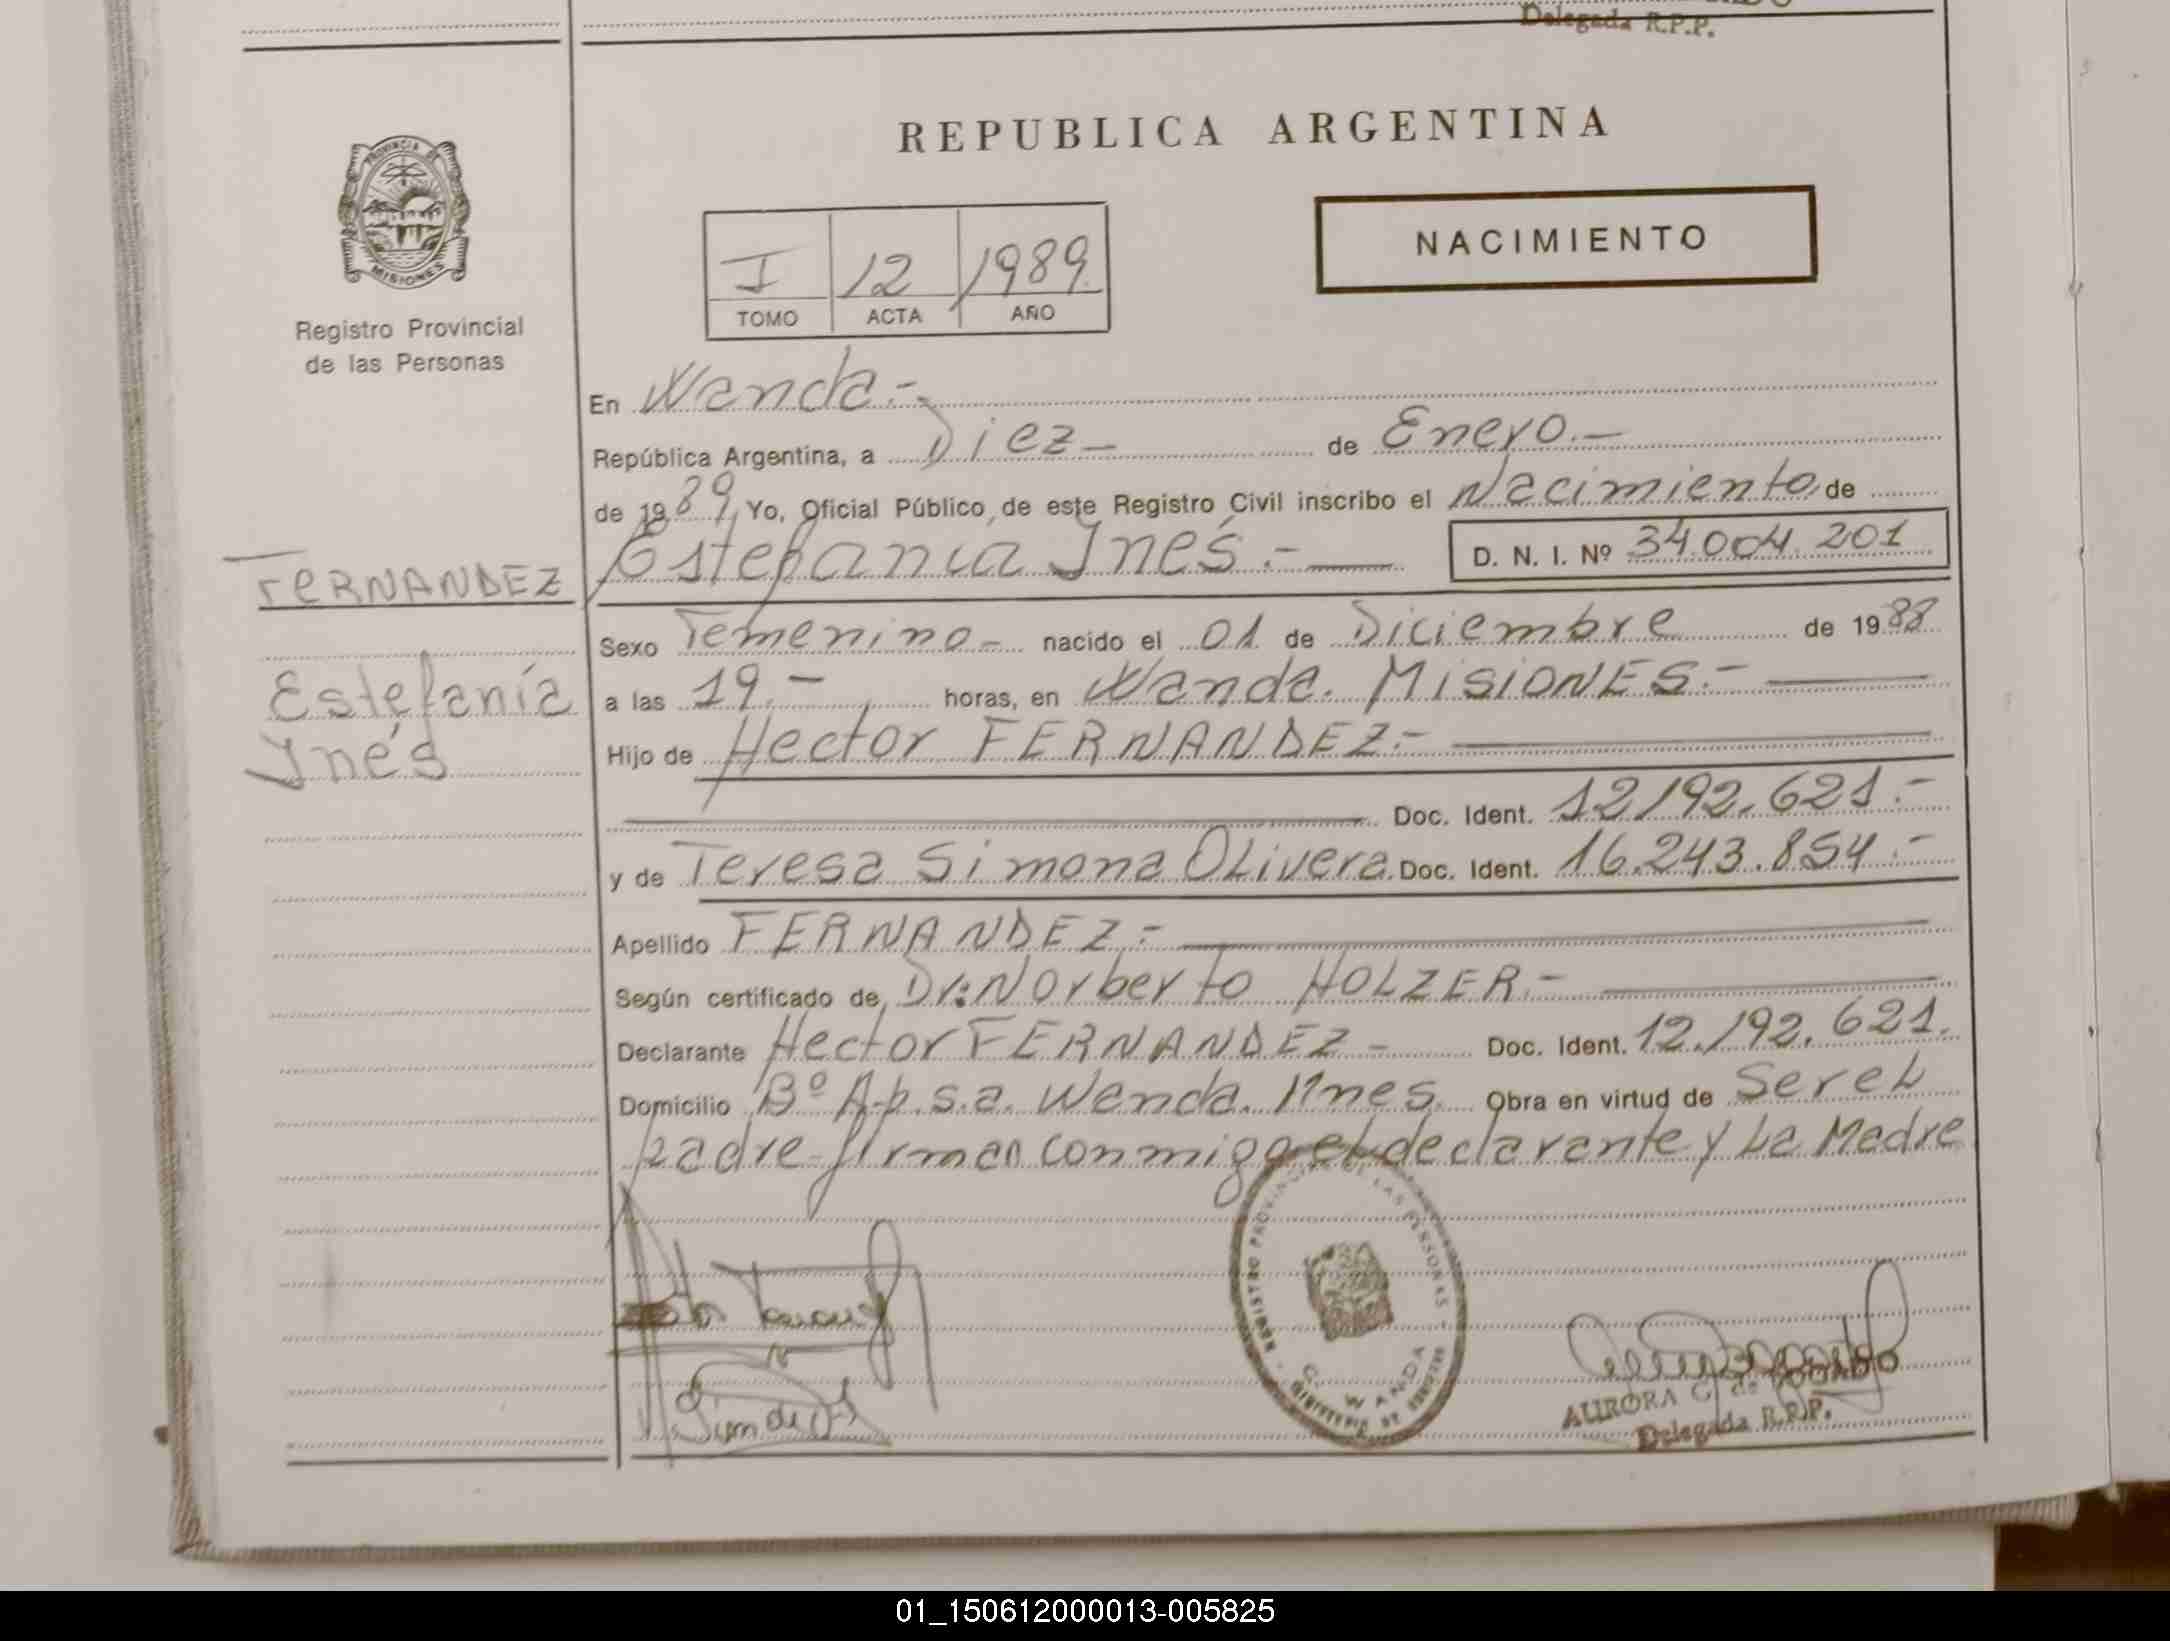 Delegada R.P.P.
REPUBLICA ARGENTINA
PROVINCIA DE
MISIONES
Registro Provincial
de las Personas
I 12 1989.
TOMO ACTA AÑO
NACIMIENTO
En Wanda.-
República Argentina, a Diez- de Enero.-
de 1989, Yo, Oficial Público, de este Registro Civil inscribo el Nacimiento de
Estefania Inés.- D. N. I. Nº 34.004.201
FERNANDEZ
Sexo Femenino- nacido el 01 de Diciembre de 1988
Estefanía
Inés
a las 19.- horas, en Wanda. MISIONES.-
Hijo de Hector FERNANDEZ.-
Doc. Ident. 12.192.621.-
y de Teresa Simona OLivera. Doc. Ident. 16.243.854.-
Apellido FERNANDEZ.-
Según certificado de Dr: Norberto HOLZER.-
Declarante Hector FERNANDEZ- Doc. Ident. 12.192.621.
Domicilio Bº A.p.s.a. Wanda. Mnes. Obra en virtud de Ser eL
padre-firman conmigo eL declarante y La Madre
REGISTRO PROVINCIAL DE LAS PERSONAS
WANDA
AURORA G. de
Delegada R.P.P.
01_150612000013-005825